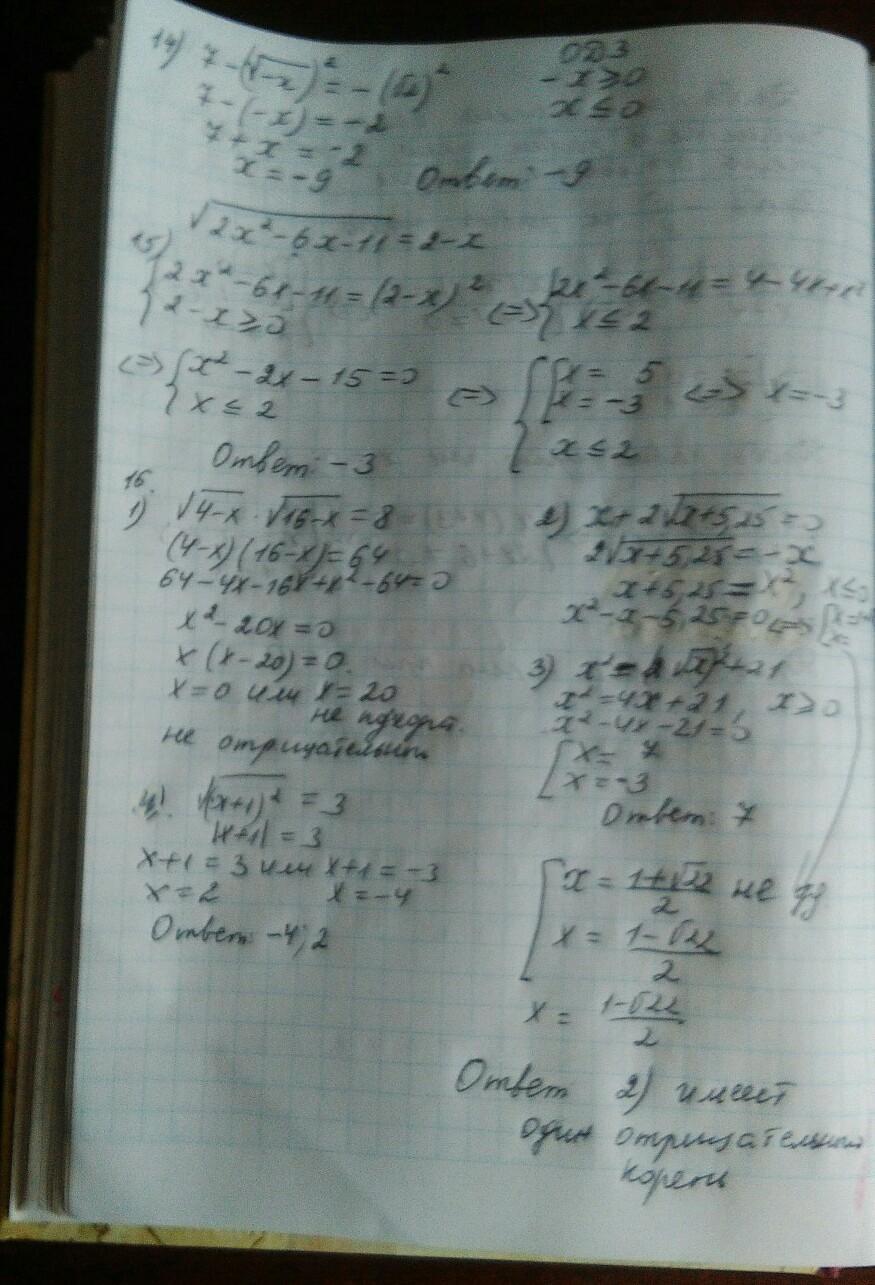 14) 7-(√-x)² = -(√2)²
ОДЗ
7-(-x) = -2
-x ≥ 0
7+x = -2
x ≤ 0
x = -9
Ответ: -9
15) √2x²-6x-11 = 2-x
{2x²-6x-11 = (2-x)²
2-x ≥ 0
<=> {2x²-6x-11 = 4-4x+x²
x ≤ 2
<=> {x²-2x-15 = 0
x ≤ 2
<=> {[x = 5
x = -3
x ≤ 2
<=> x = -3
Ответ: -3
16.
1) √4-x · √16-x = 8
(4-x)(16-x) = 64
64-4x-16x+x²-64=0
x²-20x = 0
x(x-20) = 0.
x = 0 или x = 20
не отрицательны
2) x+2√x+5,25 = 0
2√x+5,25 = -x
x+5,25 = x², x≤0
x²-x-5,25 = 0 <=> [x=
x=
3) x² = 4x+21, x ≥ 0
x²-4x-21=0
[x = 7
x = -3
Ответ: 7
4) √(x+1)² = 3
|x+1| = 3
x+1 = 3 или x+1 = -3
x = 2 x = -4
Ответ: -4; 2
[x = 1+√22/2 не
x = 1-√22/2
x = 1-√22/2
Ответ 2) имеет
один отрицательный
корень